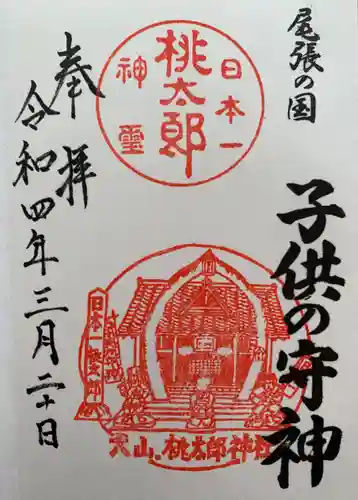 尾張の国
子供の守神
日本一
桃太郎
神霊
犬山 桃太郎神社
日本一
奉拝
令和四年三月二十日